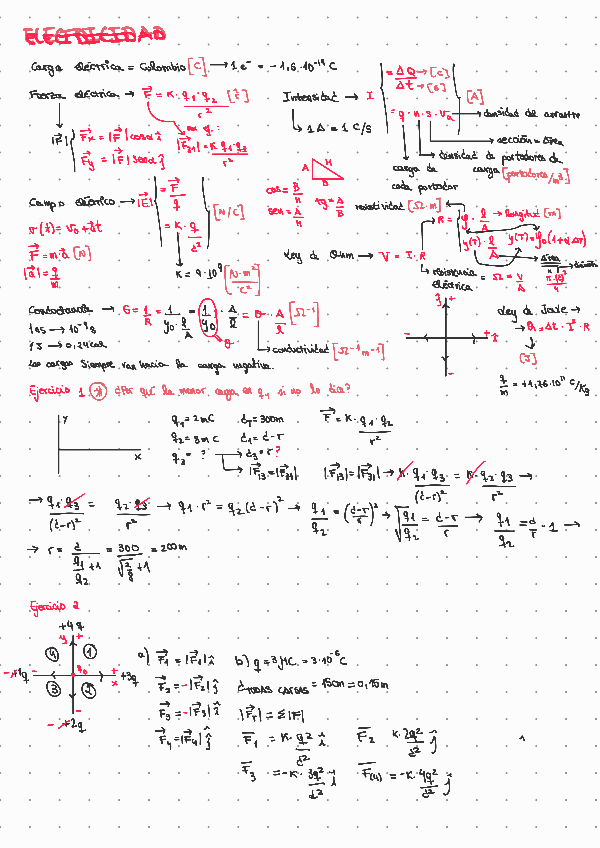 ELECTRICIDAD
Carga eléctrica = Colombio [C] → 1 e⁻ = -1,6·10⁻¹⁹ C
Fuerza eléctrica → F = K· q₁·q₂ / r² [ ]
|F| Fx = |F| cosα î
Fy = |F| senα ĵ
|F₂₁| = K q₁·q₂ / r²
Intensidad → I = ΔQ → [C] / Δt → [s] [A]
= q · n · s · Va → densidad de arrastre
→ 1 A = 1 C/s
→ sección = área
→ densidad de portadores de carga [portadores/m³]
carga de cada portador
Campo eléctrico → |E| = F / q [N/C]
= K · q / d²
K = 9·10⁹ [N·m² / C²]
v(t) = v₀ + at
F = m·a [N]
|a| = q / m
A H B
cos = B / H
sen = A / H
tg = A / B
resistividad [Ω·m]
R = ρ · l / A → longitud [m]
ρ(T) · l / A ρ(T) = ρ₀(1+αΔT)
área
Ley de Ohm → V = I · R
→ resistencia eléctrica = Ω = V / A
Conductancia → G = 1/R = 1 / ρ₀ · l/A = 1/ρ₀ · A/l = σ · A/l [Ω⁻¹]
1 as → 10⁻¹⁸ s
→ conductividad [Ω⁻¹ m⁻¹]
1 J → 0,24 cal
Las cargas siempre van hacia la carga negativa.
Ley de Joule →
→ Q = Δt · I² · R
[J]
q/m = +1,76·10¹¹ C/Kg
Ejercicio 1. ¿Por qué la menor carga es q₁ si no lo dice?
y
x
q₁ = 2mC d_T = 300m F = K · q₁·q₂ / r²
q₂ = 8mC d₁ = d-r
q₃ = ? d₃ = r?
→ |F₁₃| = |F₃₁| |F₁₃| = |F₃₁| → K · q₁·q₃ / (d-r)² = K · q₂·q₃ / r² →
→ q₁·q₃ / (d-r)² = q₂·q₃ / r² → q₁·r² = q₂(d-r)² → q₁/q₂ = (d-r / r)² → √q₁/q₂ = d-r / r → q₁/q₂ = d/r - 1 →
→ r = d / q₁/q₂ + 1 = 300 / √2/8 + 1 = 200m
Ejercicio 2
+4q
y +
4 1
-+1q q₀ + +3q
x
3 2
-+2q
a) F₁ = |F₁| î
F₂ = -|F₂| ĵ
F₃ = -|F₃| î
F₄ = |F₄| ĵ
b) q = 3μC = 3·10⁻⁶ C
d TODAS CARGAS = 15cm = 0,15m
|F_T| = Σ|F|
F₁ = K · q² / d² î F₂ K · 2q² / d² ĵ
F₃ = -K · 3q² / d² î F(4) = -K · 4q² / d² ĵ